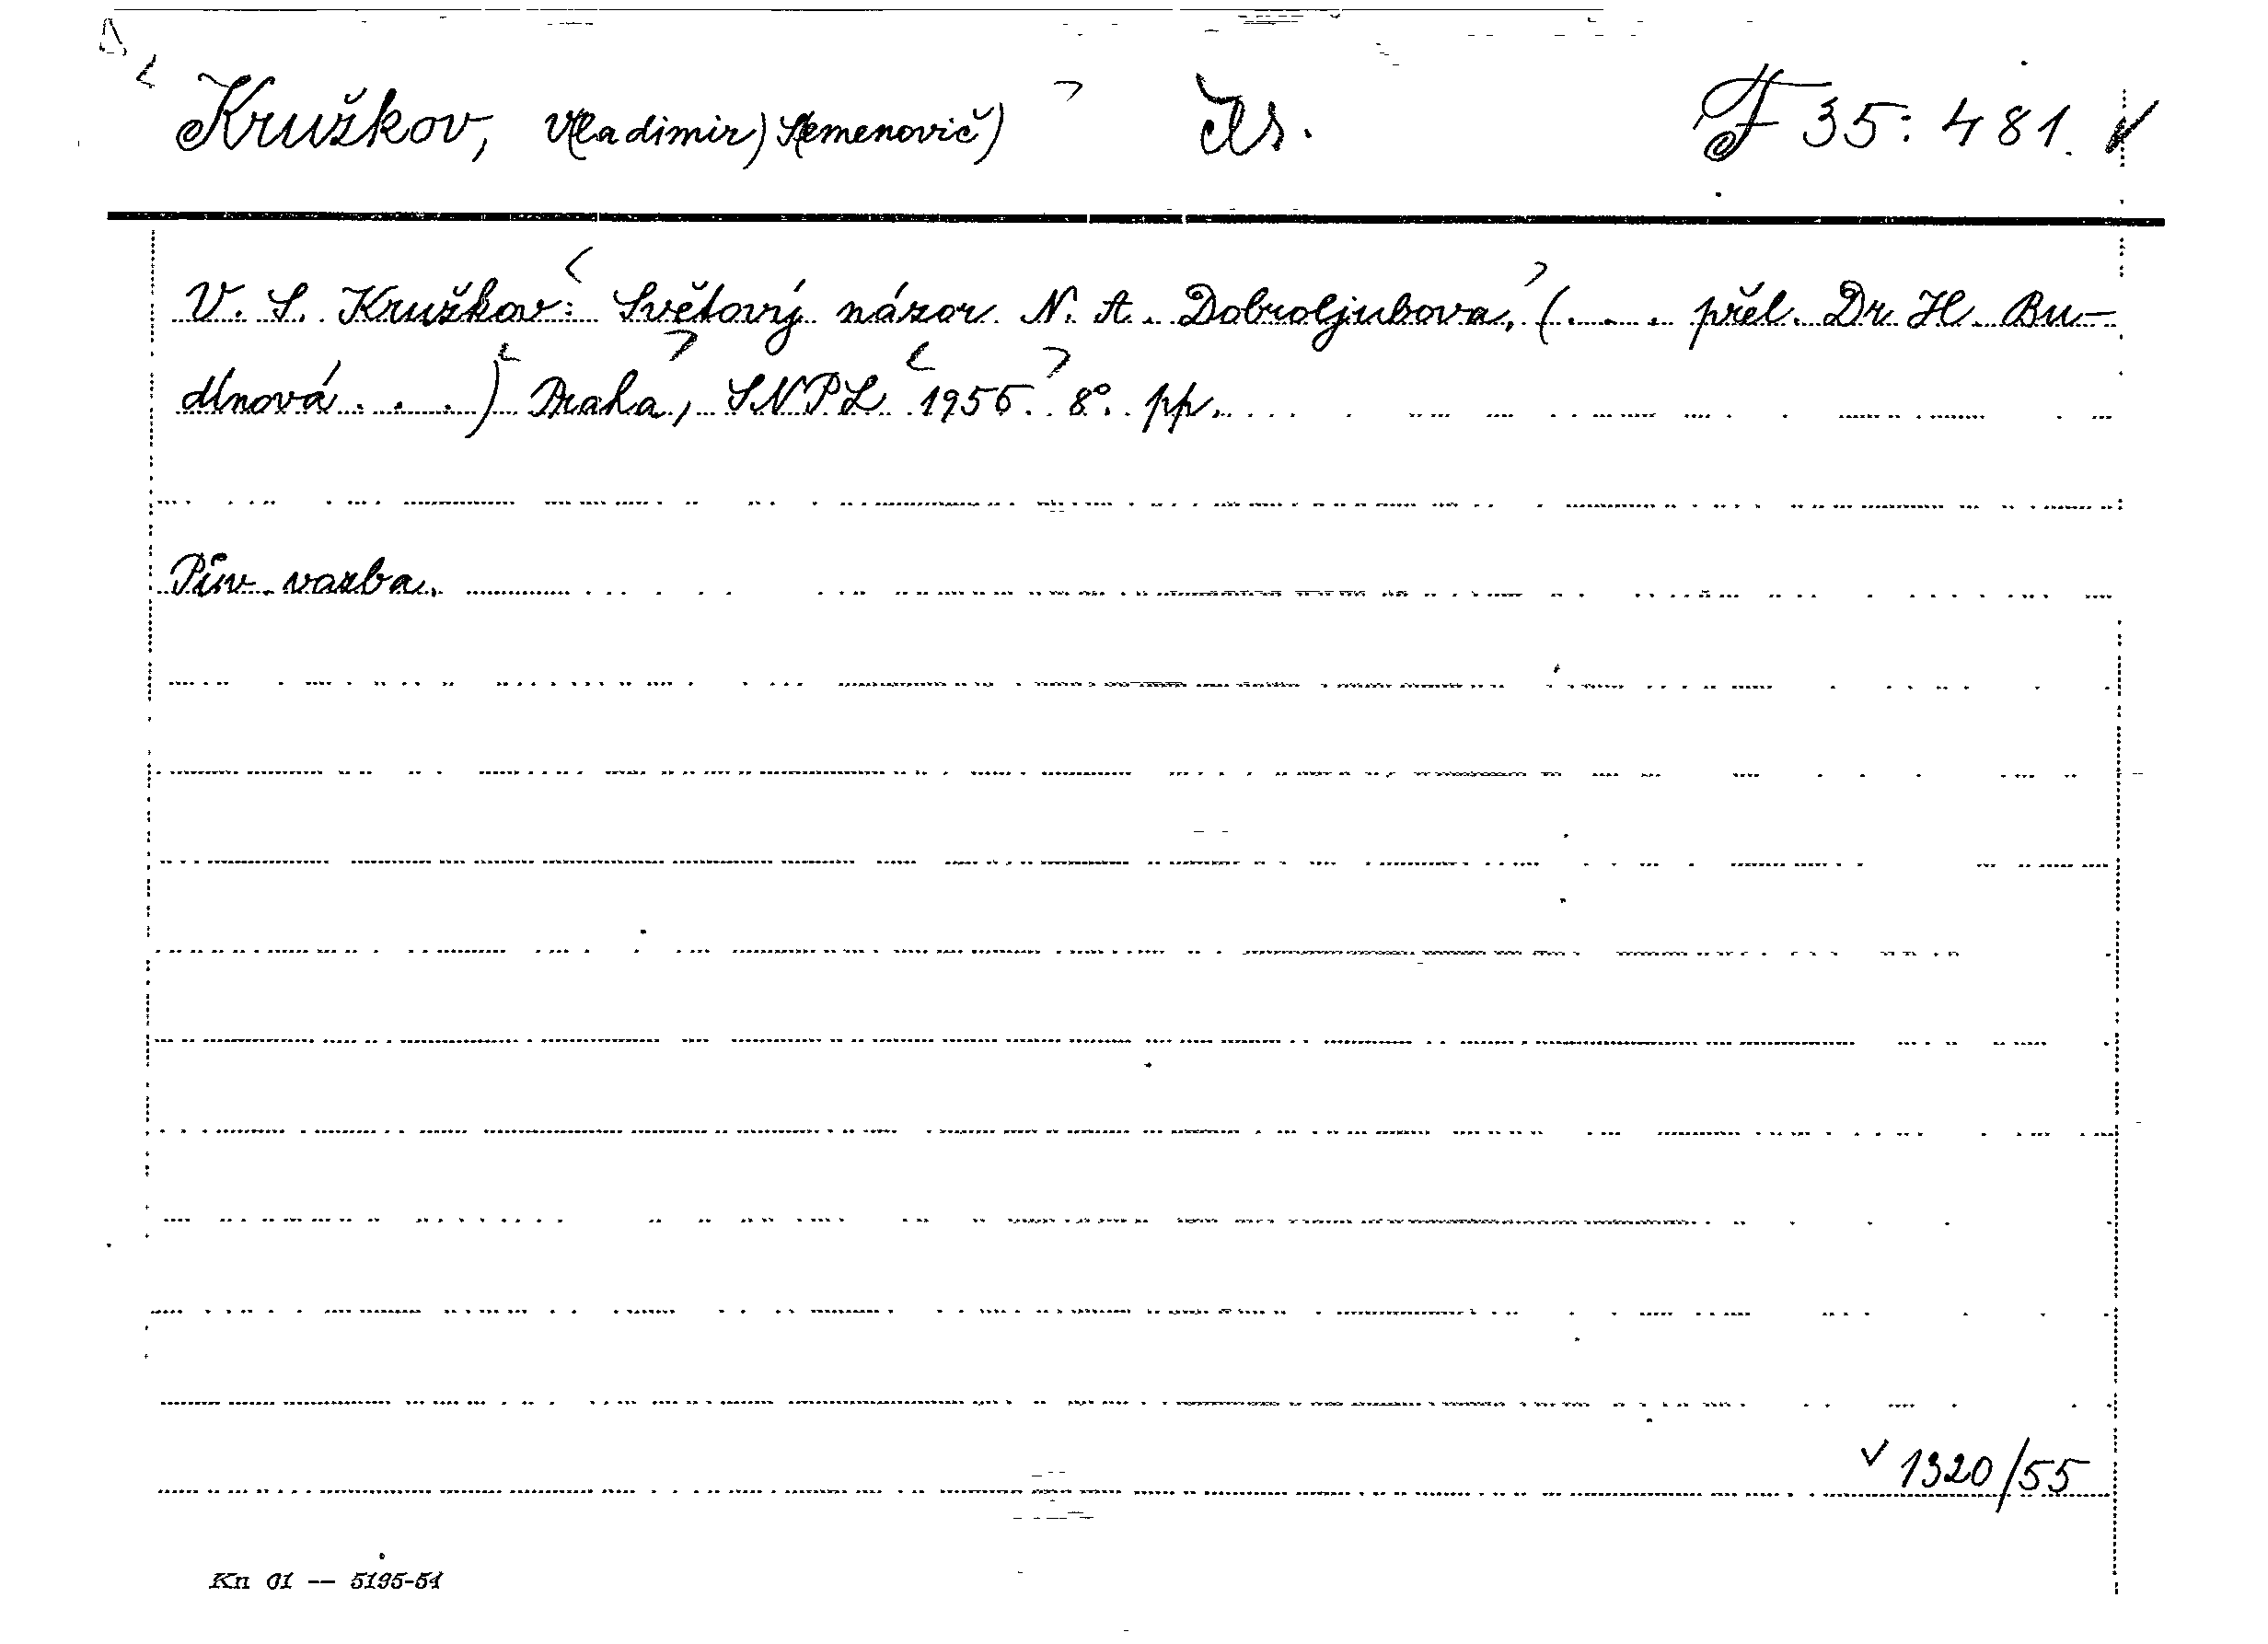 Kružkov, V(ladimir) S(emenovič) čs. F 35:481.
V. S. Kružkov: Světový názor N. A. Dobroljubova, (... přel. Dr H. Bu-
dínová ...) Praha, SNPL 1955. 8°. pp.
Pův. vazba.
1320/55
Kn 01 — 5195-54